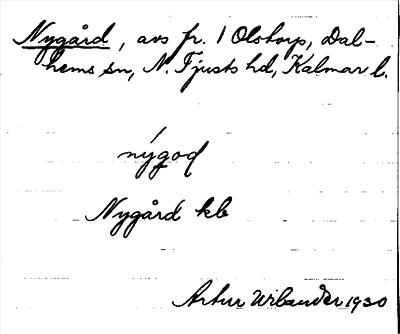 Nygård, avs fr. 1 Olstorp, Dal-
hems sn, N. Tjusts hd, Kalmar l.
nýgod
Nygård kb
Artur Wibander 1930